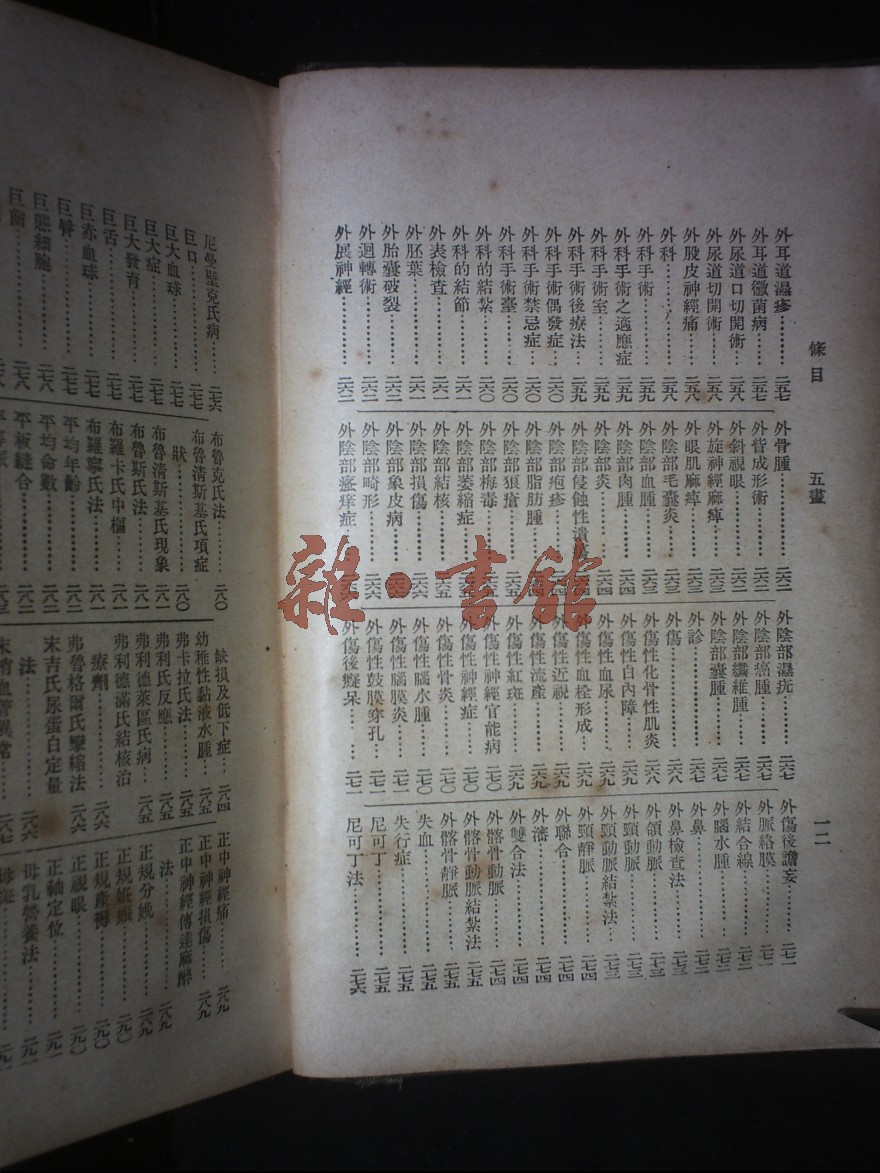 條目
五畫
一二
外耳道濕疹………二五七
外耳道黴菌病……二五七
外尿道口切開術…二五八
外尿道切開術……二五八
外股皮神經痛……二五八
外科………二五八
外科手術………二五九
外科手術之適應症…二五九
外科手術室………二五九
外科手術後療法…二五九
外科手術偶發症…二六〇
外科手術禁忌症…二六〇
外科手術臺………二六〇
外科的結紮………二六〇
外科的結節………二六一
外表檢查………二六一
外胚葉………二六一
外胎囊破裂………二六一
外迴轉術………二六二
外展神經………二六二
外骨腫………二六二
外眥成形術………二六二
外斜視眼………二六二
外旋神經麻痺……二六二
外眼肌麻痺………二六三
外陰部毛囊炎……二六三
外陰部血腫………二六三
外陰部肉腫………二六四
外陰部炎………二六四
外陰部侵蝕性潰瘍
外陰部疱疹………二六四
外陰部脂肪腫……二六四
外陰部狼瘡………二六五
外陰部梅毒………二六五
外陰部萎縮症……二六五
外陰部結核………二六五
外陰部損傷………二六六
外陰部象皮病……二六六
外陰部畸形………二六六
外陰部瘙痒症……
外陰部濕疣………二六七
外陰部癌腫………二六七
外陰部纖維腫……二六七
外陰部囊腫………二六七
外診………二六八
外傷………二六八
外傷性化骨性肌炎…二六八
外傷性白內障……二六九
外傷性血尿………二六九
外傷性血栓形成…二六九
外傷性近視………二六九
外傷性流產………二六九
外傷性紅斑………二七〇
外傷性神經官能病…二七〇
外傷性神經症……二七〇
外傷性骨炎………二七〇
外傷性腦水腫……二七〇
外傷性腦膜炎……二七一
外傷性鼓膜穿孔…二七一
外傷後癡呆………二七一
外傷後譫妄………二七一
外脈絡膜………二七一
外結合線………二七二
外腦水腫………二七二
外鼻………二七二
外鼻檢查法………二七三
外頜動脈………二七三
外頸動脈………二七三
外頸動脈結紮法…二七三
外頸靜脈………二七四
外聯合………二七四
外瀋………二七四
外雙合法………二七四
外髂骨動脈………二七四
外髂骨動脈結紮法…二七五
外髂骨靜脈………二七五
失血………二七五
失行症………二七五
尼可丁………二七五
尼可丁法………二七六
尼曼壁克氏病……二七六
巨口………二七七
巨大血球………二七七
巨大症………二七七
巨大發育………二七七
巨舌………二七七
巨赤血球………二七七
巨臂………二七七
巨態細胞………二七八
巨齒………二七八
布魯克氏法………二八〇
布魯清斯基氏項症
狀………二八〇
布魯清斯基氏現象…二八一
布魯斯氏法………二八一
布羅卡氏中樞……二八一
布羅寧氏法………二八一
平均年齡………二八二
平均命數………二八二
平板縫合………二八二
缺損及低下症……二八四
幼稚性黏液水腫…二八五
弗卡拉氏法………二八五
弗利氏反應………二八五
弗利德萊區氏病…二八五
弗利德滿氏結核治
療劑………二八六
弗魯格爾氏攣縮法…二八六
末吉氏尿蛋白定量
法………二八六
末梢血管異常……二八七
正中神經痛………二八九
正中神經損傷……二八九
正中神經傳達麻醉
法………二八九
正規分娩………二八九
正規妊娠………二九〇
正規產褥………二九〇
正視眼………二九〇
正軸定位………二九一
母乳營養法………二九一
母斑………二九一